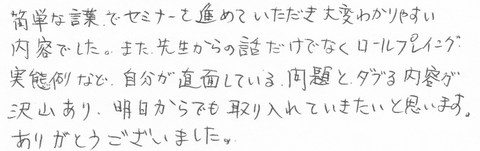 簡単な言葉でセミナーを進めていただき大変わかりやすい
内容でした。また、先生からの話だけでなくロールプレイング、
実態例など、自分が直面している、問題と、ダブる内容が
沢山あり、明日からでも取り入れていきたいと思います。
ありがとうございました。